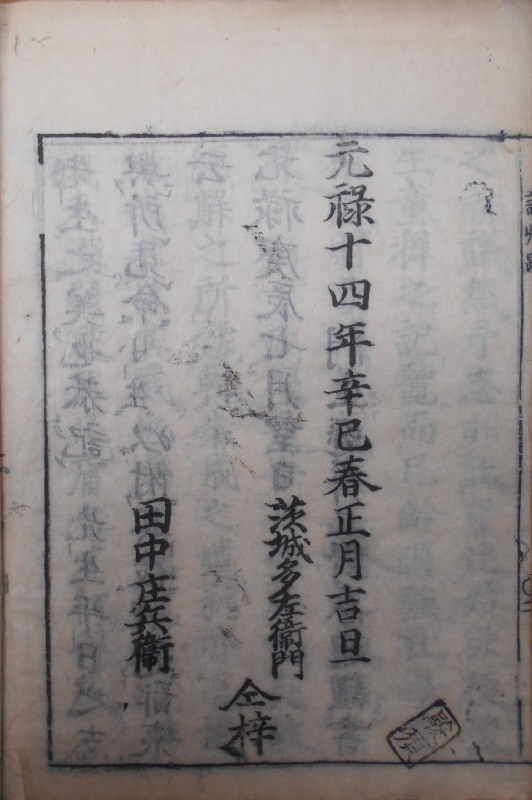 元禄十四年辛巳春正月吉旦
茨城多左衛門
田中庄兵衛
仝梓